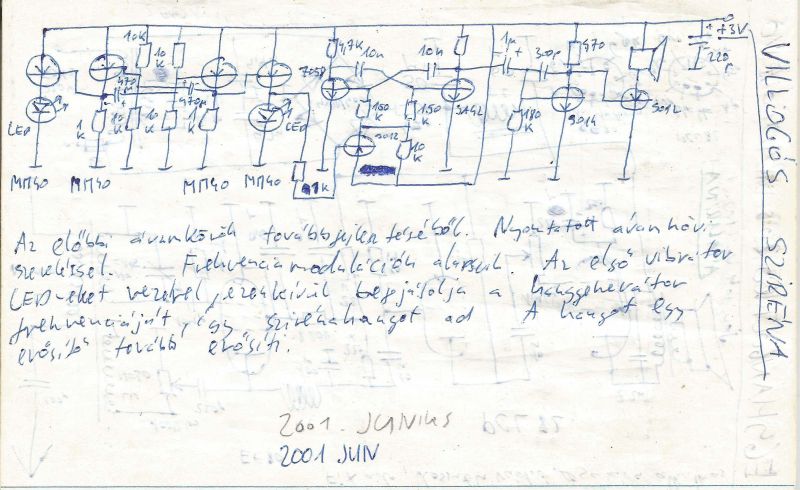 VILLOGÓS SZIRÉNA
+3V
220µ
10K
10K
470µ
470µ
LED
1K
10K
10K
1K
LED
МП40
МП40
МП40
МП40
1K
4,7K
10n
10n
150K
150K
9012
10K
1µ
180K
470
9014
9012
Az előbbi áramkörök továbbfejlesztéséből. Nyomtatott áramköri
szereléssel. Frekvencia moduláción alapszik. Az első vibrátor
LED-eket vezérel, ezenkívül befolyásolja a hanggenerátor
frekvenciáját, így szirénahangot ad A hangot egy
erősítő tovább erősíti.
2001. JUNIUS
2001 JUN